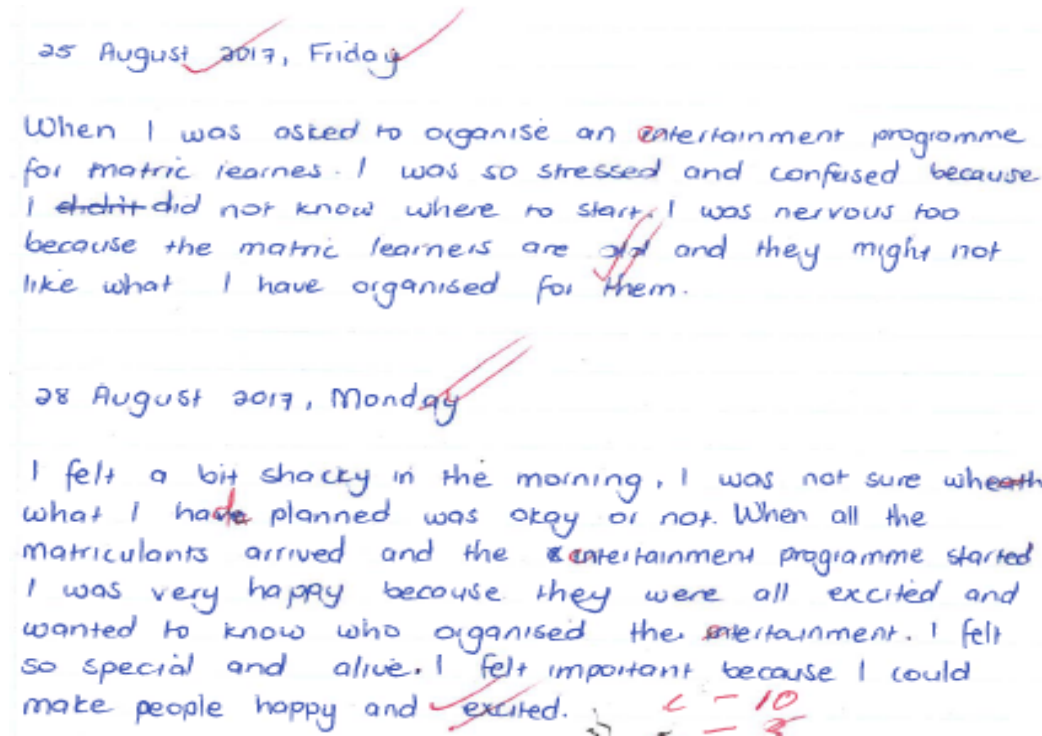 25 August 2017, Friday
When I was asked to organise an entertainment programme
for matric learnes. I was so stressed and confused because
I didn't did not know where to start. I was nervous too
because the matric learners are old and they might not
like what I have organised for them.
28 August 2017, Monday
I felt a bit shacky in the morning, I was not sure wheath
what I had planned was okay or not. When all the
matriculants arrived and the entertainment programme started
I was very happy because they were all excited and
wanted to know who organised the entertainment. I felt
so special and alive. I felt important because I could
make people happy and excited.
C - 10